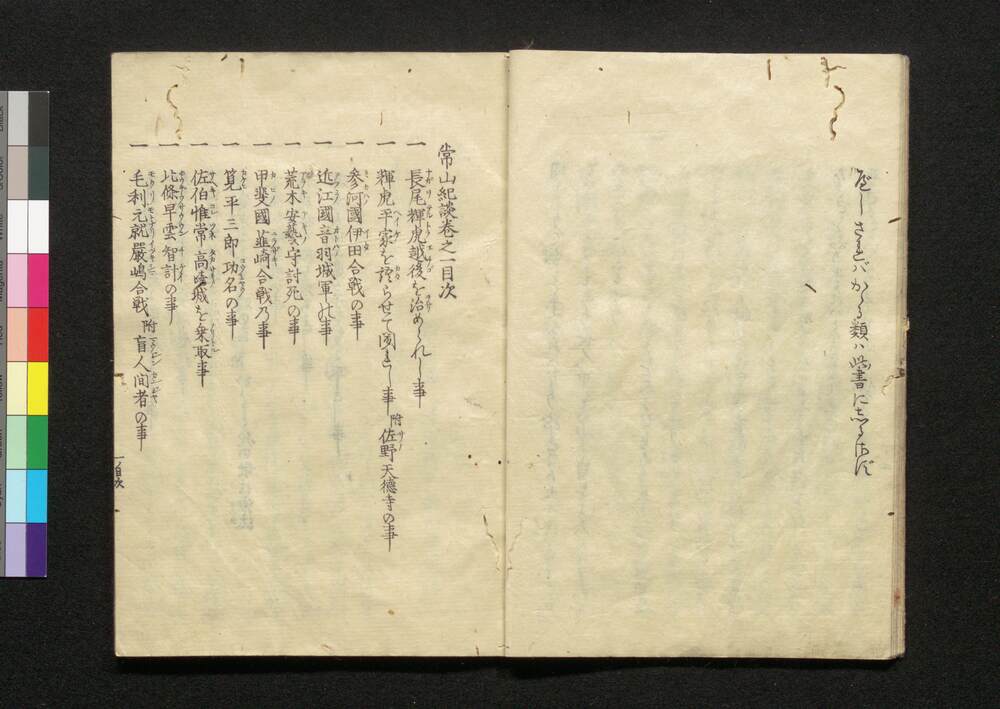 べしされバかゝる類ハ此書にしるさず
常山紀談巻之一目次
一 長尾輝虎越後を治められし事
一 輝虎平家を語らせて聞れし事 附佐野天徳寺の事
一 参河國伊田合戦の事
一 近江國音羽城軍の事
一 荒木安藝守討死の事
一 甲斐國韮崎合戦乃事
一 筧平三郎功名の事
一 佐伯惟常高崎城を乗取事
一 北條早雲智計の事
一 毛利元就嚴嶋合戦 附盲人间者の事
一ノ目次